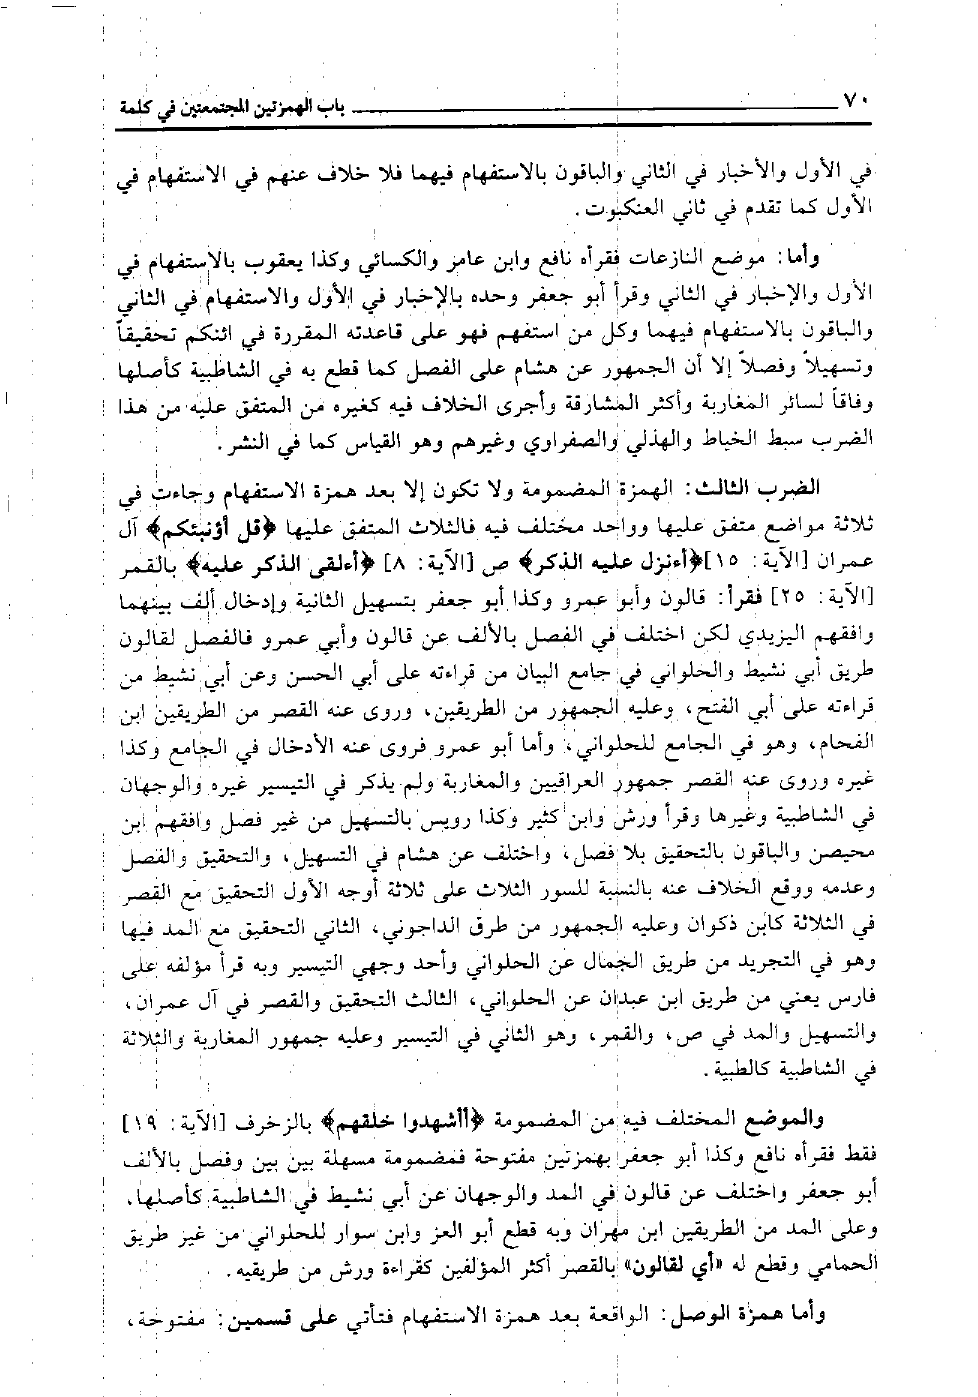 ٧٠ باب الهمزتين المجتمعتين في كلمة
في الأول والأخبار في الثاني والباقون بالاستفهام فيهما فلا خلاف عنهم في الاستفهام في
الأول كما تقدم في ثاني العنكبوت.
وأما: موضع النازعات فقرأه نافع وابن عامر والكسائي وكذا يعقوب بالاستفهام في
الأول والإخبار في الثاني وقرأ أبو جعفر وحده بالإخبار في الأول والاستفهام في الثاني
والباقون بالاستفهام فيهما وكل من استفهم فهو على قاعدته المقررة في ائنكم تحقيقاً
وتسهيلاً وفصلاً إلا أن الجمهور عن هشام على الفصل كما قطع به في الشاطبية كأصلها
وفاقاً لسائر المغاربة وأكثر المشارقة وأجرى الخلاف فيه كغيره من المتفق عليه من هذا
الضرب سبط الخياط والهذلي والصفراوي وغيرهم وهو القياس كما في النشر.
الضرب الثالث: الهمزة المضمومة ولا تكون إلا بعد همزة الاستفهام وجاءت في
ثلاثة مواضع متفق عليها وواحد مختلف فيه فالثلاث المتفق عليها ﴿قل أؤنبئكم﴾ آل
عمران [الآية: ١٥] ﴿أءنزل عليه الذكر﴾ ص [الآية: ٨] ﴿أءلقى الذكر عليه﴾ بالقمر
[الآية: ٢٥] فقرأ: قالون وأبو عمرو وكذا أبو جعفر بتسهيل الثانية وإدخال ألف بينهما
وافقهم اليزيدي لكن اختلف في الفصل بالألف عن قالون وأبي عمرو فالفصل لقالون
طريق أبي نشيط والحلواني في جامع البيان من قراءته على أبي الحسن وعن أبي نشيط من
قراءته على أبي الفتح، وعليه الجمهور من الطريقين، وروى عنه القصر من الطريقين ابن
الفحام، وهو في الجامع للحلواني، وأما أبو عمرو فروى عنه الأدخال في الجامع وكذا
غيره وروى عنه القصر جمهور العراقيين والمغاربة ولم يذكر في التيسير غيره والوجهان
في الشاطبية وغيرها وقرأ ورش وابن كثير وكذا رويس بالتسهيل من غير فصل وافقهم ابن
محيصن والباقون بالتحقيق بلا فصل، واختلف عن هشام في التسهيل، والتحقيق والفصل
وعدمه ووقع الخلاف عنه بالنسبة للسور الثلاث على ثلاثة أوجه الأول التحقيق مع القصر
في الثلاثة كابن ذكوان وعليه الجمهور من طرق الداجوني، الثاني التحقيق مع المد فيها
وهو في التجريد من طريق الجمال عن الحلواني وأحد وجهي التيسير وبه قرأ مؤلفه على
فارس يعني من طريق ابن عبدان عن الحلواني، الثالث التحقيق والقصر في آل عمران،
والتسهيل والمد في ص، والقمر، وهو الثاني في التيسير وعليه جمهور المغاربة والثلاثة
في الشاطبية كالطيبة.
والموضع المختلف فيه من المضمومة ﴿أأشهدوا خلقهم﴾ بالزخرف [الآية: ١٩]
فقط فقرأه نافع وكذا أبو جعفر بهمزتين مفتوحة فمضمومة مسهلة بين بين وفصل بالألف
أبو جعفر واختلف عن قالون في المد والوجهان عن أبي نشيط في الشاطبية كأصلها،
وعلى المد من الطريقين ابن مهران وبه قطع أبو العز وابن سوار للحلواني من غير طريق
الحمامي وقطع له «أي لقالون» بالقصر أكثر المؤلفين كقراءة ورش من طريقيه.
وأما همزة الوصل: الواقعة بعد همزة الاستفهام فتأتي على قسمين: مفتوحة،